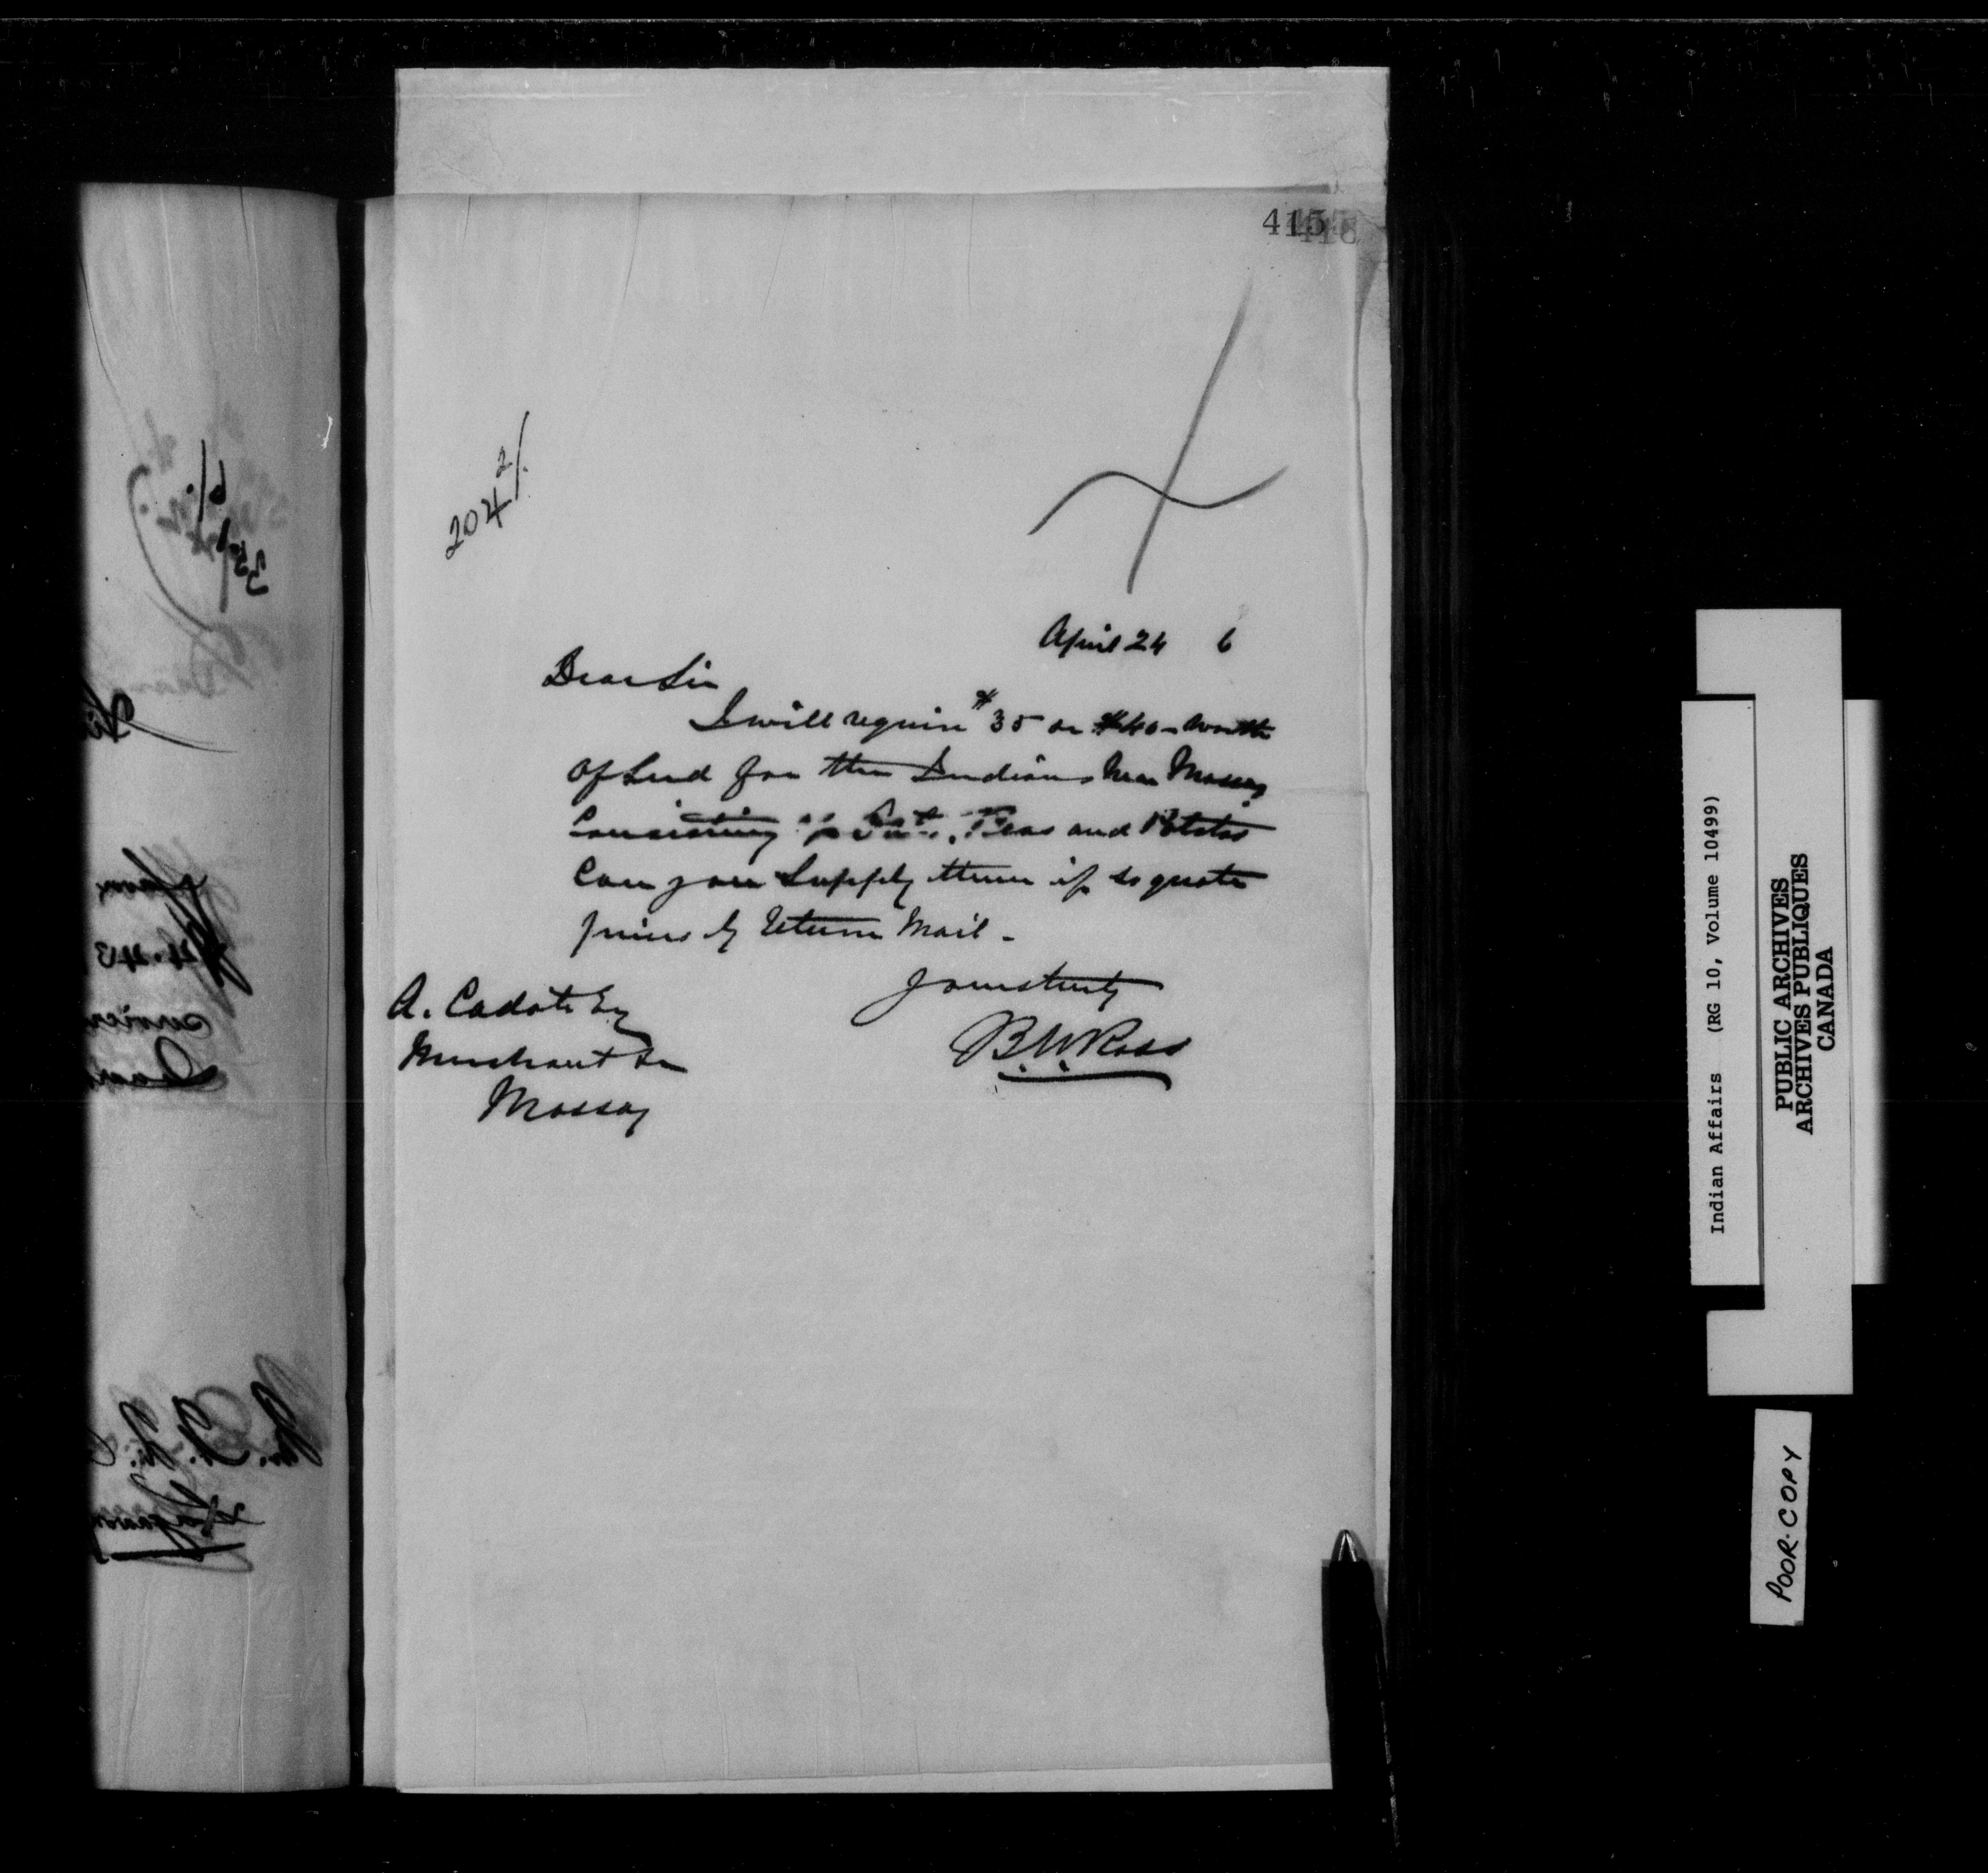 415
204 2/.
April 24 6
Dear Sir
I will require $35 or $40 - worth
of Seed for the Indians Near Massey
Consisting of Oats, Peas and Potatos
Can you Supply them if so quote
prices by Return Mail -
Yours truly
B. W. Ross
A. Cadotte Esq
Merchant
Massey
Indian Affairs (RG 10, Volume 10499)
PUBLIC ARCHIVES
ARCHIVES PUBLIQUES
CANADA
POOR. COPY